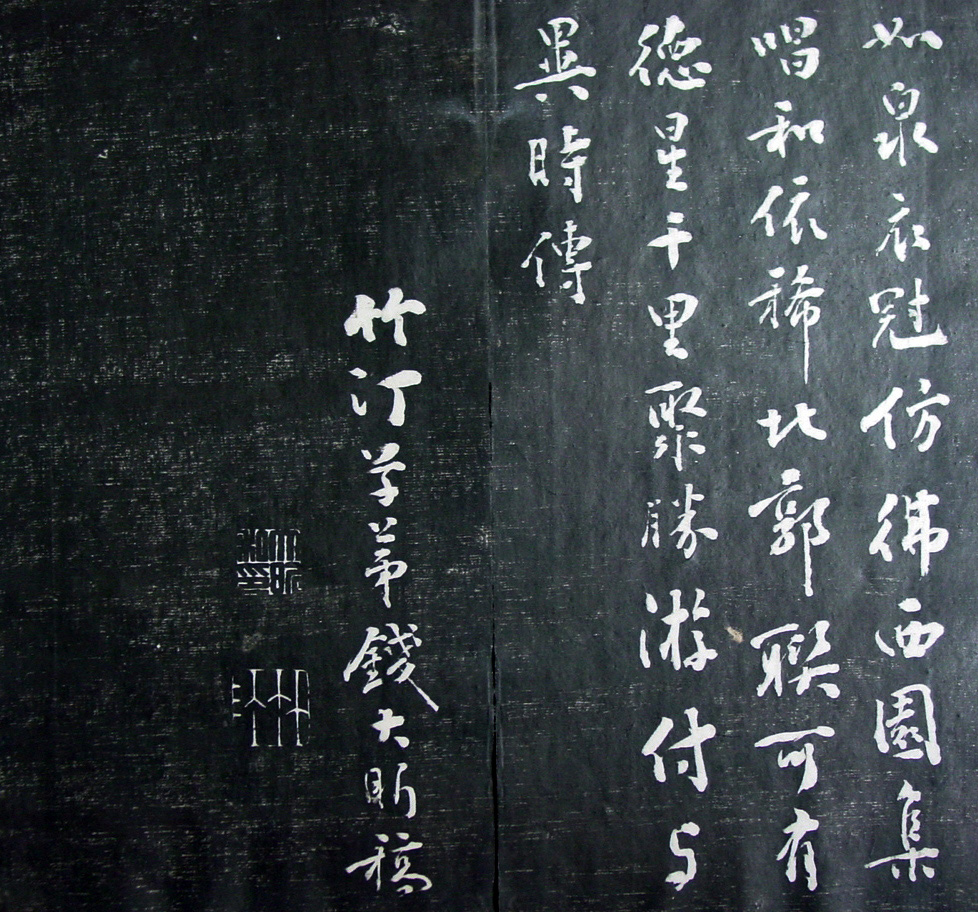 如泉衣冠仿彿西園集
唱和依稀北郭聯可有
德星千里聚勝游付与
異時傳
竹汀学弟錢大昕稿